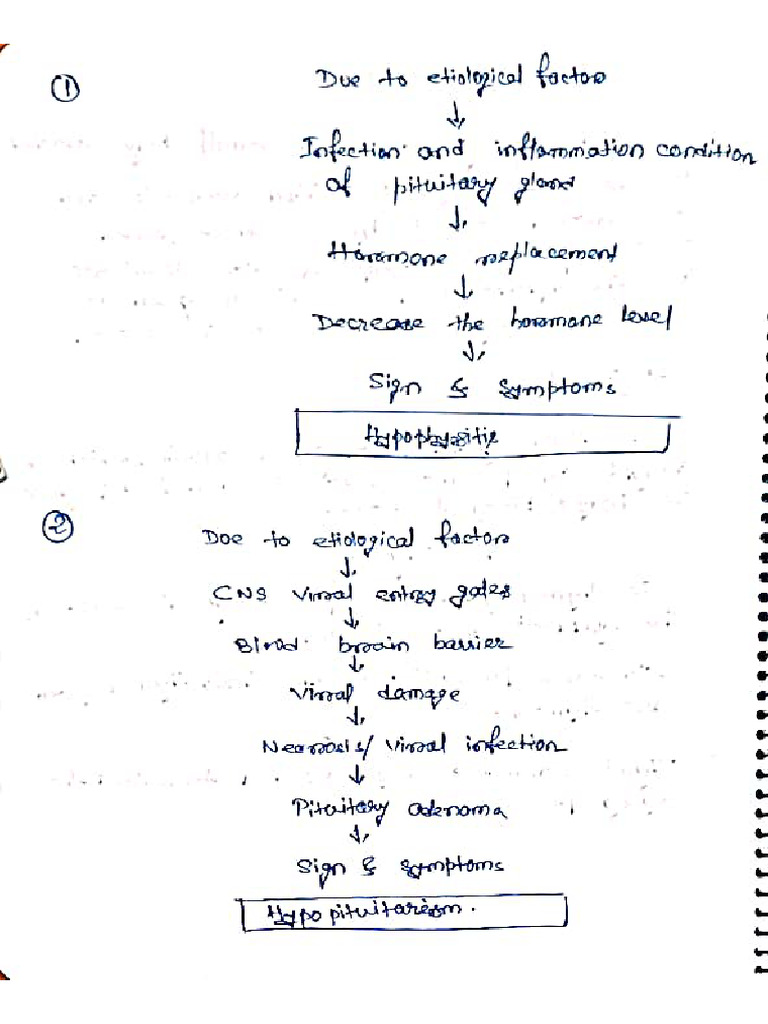 ①
Due to etiological factors
↓
Infection and inflammiation condition
of pituitary gland
↓
Horomone replacement
↓
Decrease the hormone level
↓
Sign & Symptoms
Hypophysitis
②
Due to etiological factors
↓
CNS viral entry gates
↓
Blood brain barrier
↓
Viral damage
↓
Necrosis/ Viral infection
↓
Pituitary adenoma
↓
Sign & symptoms
Hypopituitarism.